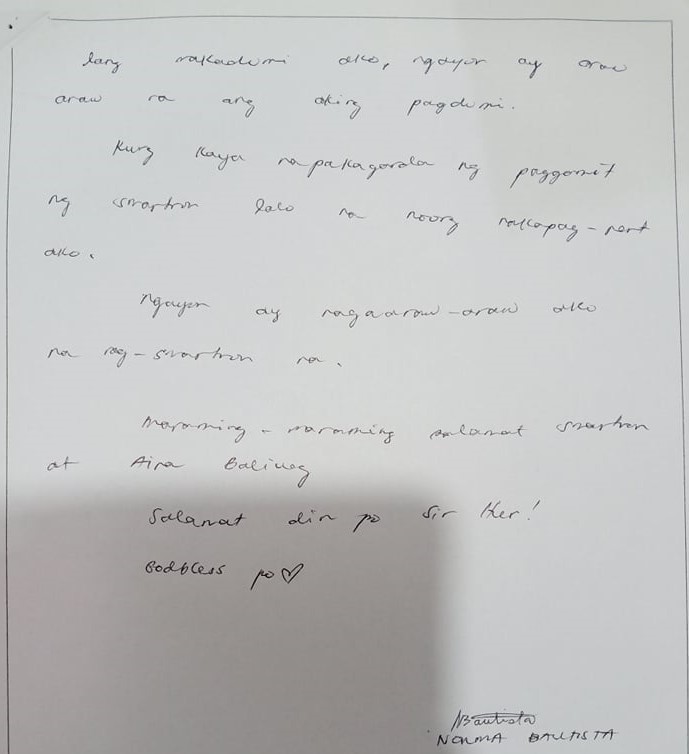 lang nakadumi ako, ngayon ay araw
araw na ang aking pagdumi.
Kung kaya napakaganda ng paggamit
ng smartron lalo na noong nakapag-rent
ako.
Ngayon ay nagaaraw-araw ako
na mag-smartron na.
Maraming-maraming salamat smartron
at Aira Baliuag
Salamat din po Sir Ker!
Godbless po♡
NBautista
NORMA BAUTISTA